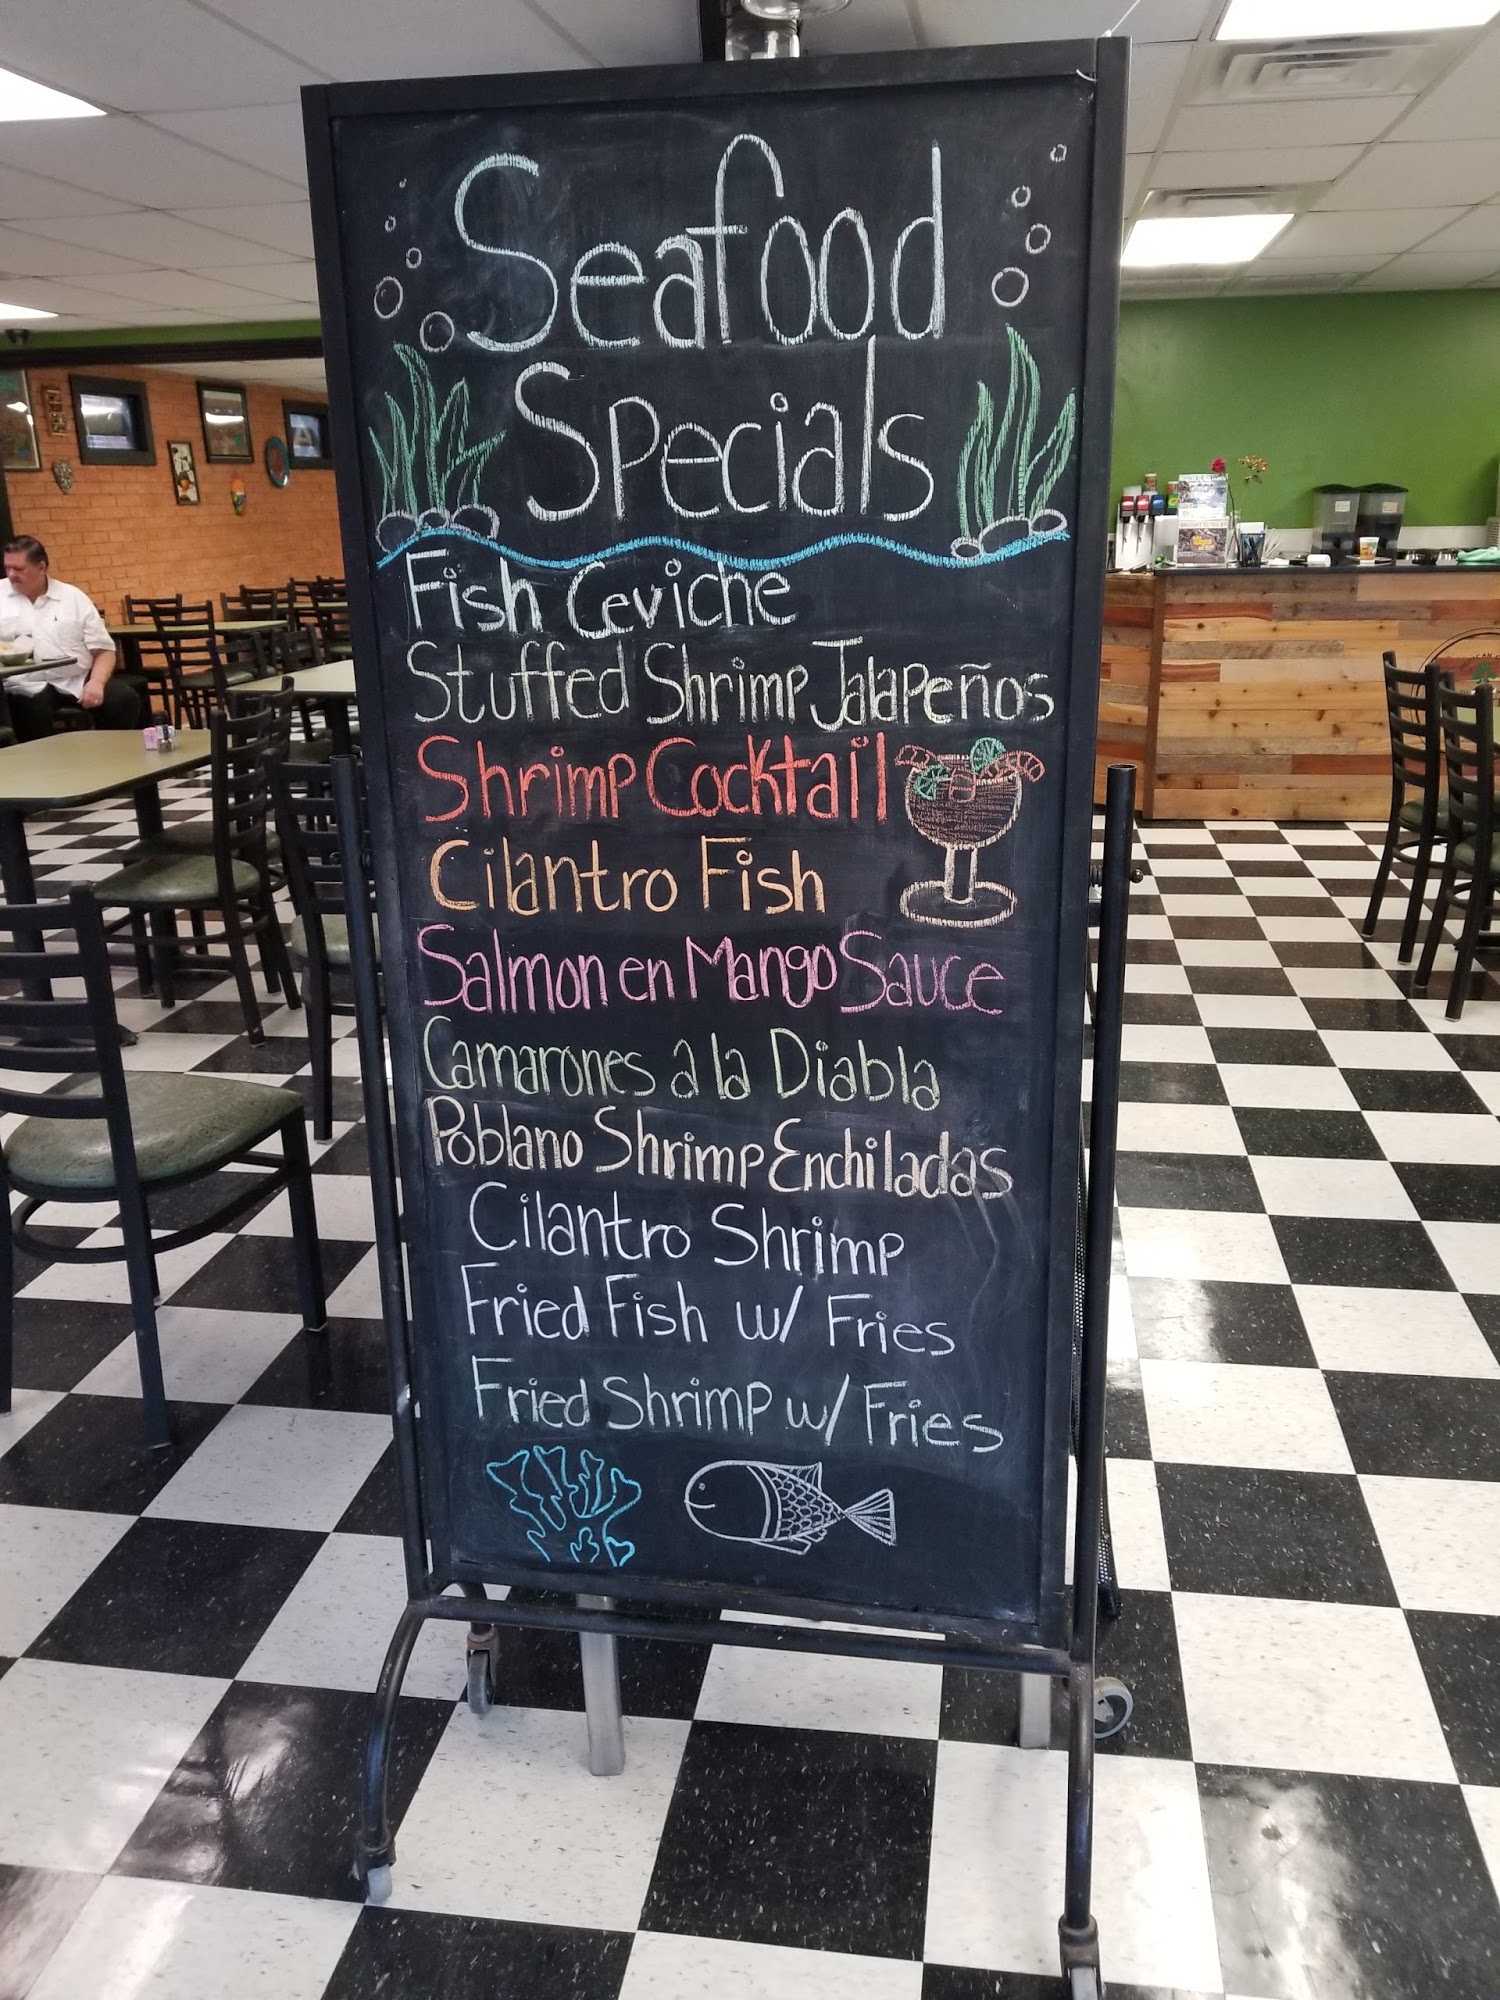 Seafood
Specials
Fish Ceviche
Stuffed Shrimp Jalapeños
Shrimp Cocktail
Cilantro Fish
Salmon en Mango Sauce
Camarones a la Diabla
Poblano Shrimp Enchiladas
Cilantro Shrimp
Fried Fish w/ Fries
Fried Shrimp w/ Fries